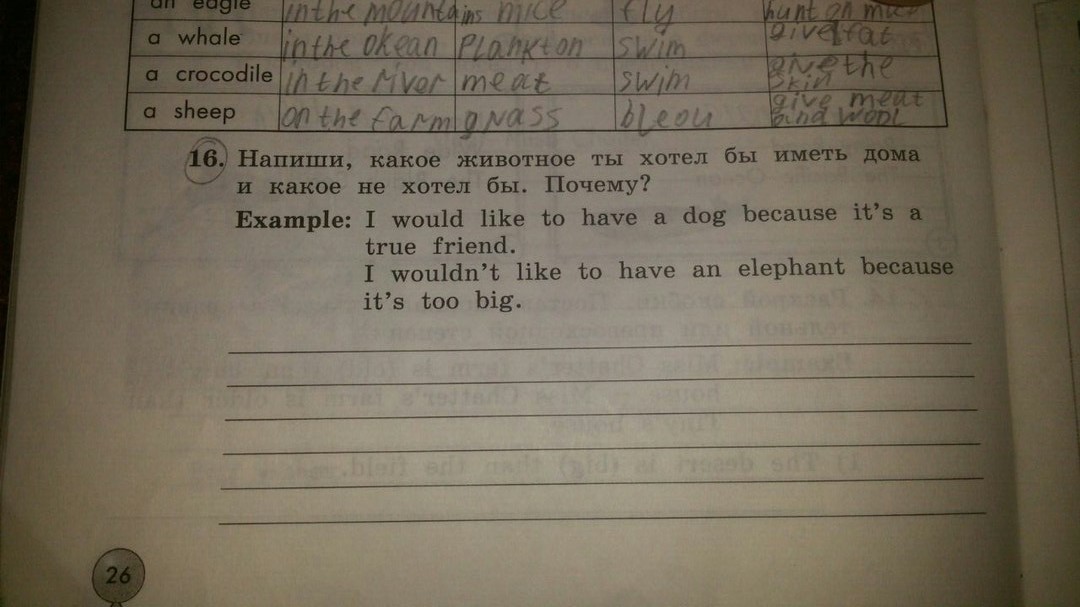 an eagle in the mountains mice fly hunt on mice
a whale in the okean plankton swim give fat
a crocodile in the river meat swim give the skin
a sheep on the farm grass bleou give meat and wool
16. Напиши, какое животное ты хотел бы иметь дома
и какое не хотел бы. Почему?
Example: I would like to have a dog because it's a
true friend.
I wouldn't like to have an elephant because
it's too big.
26